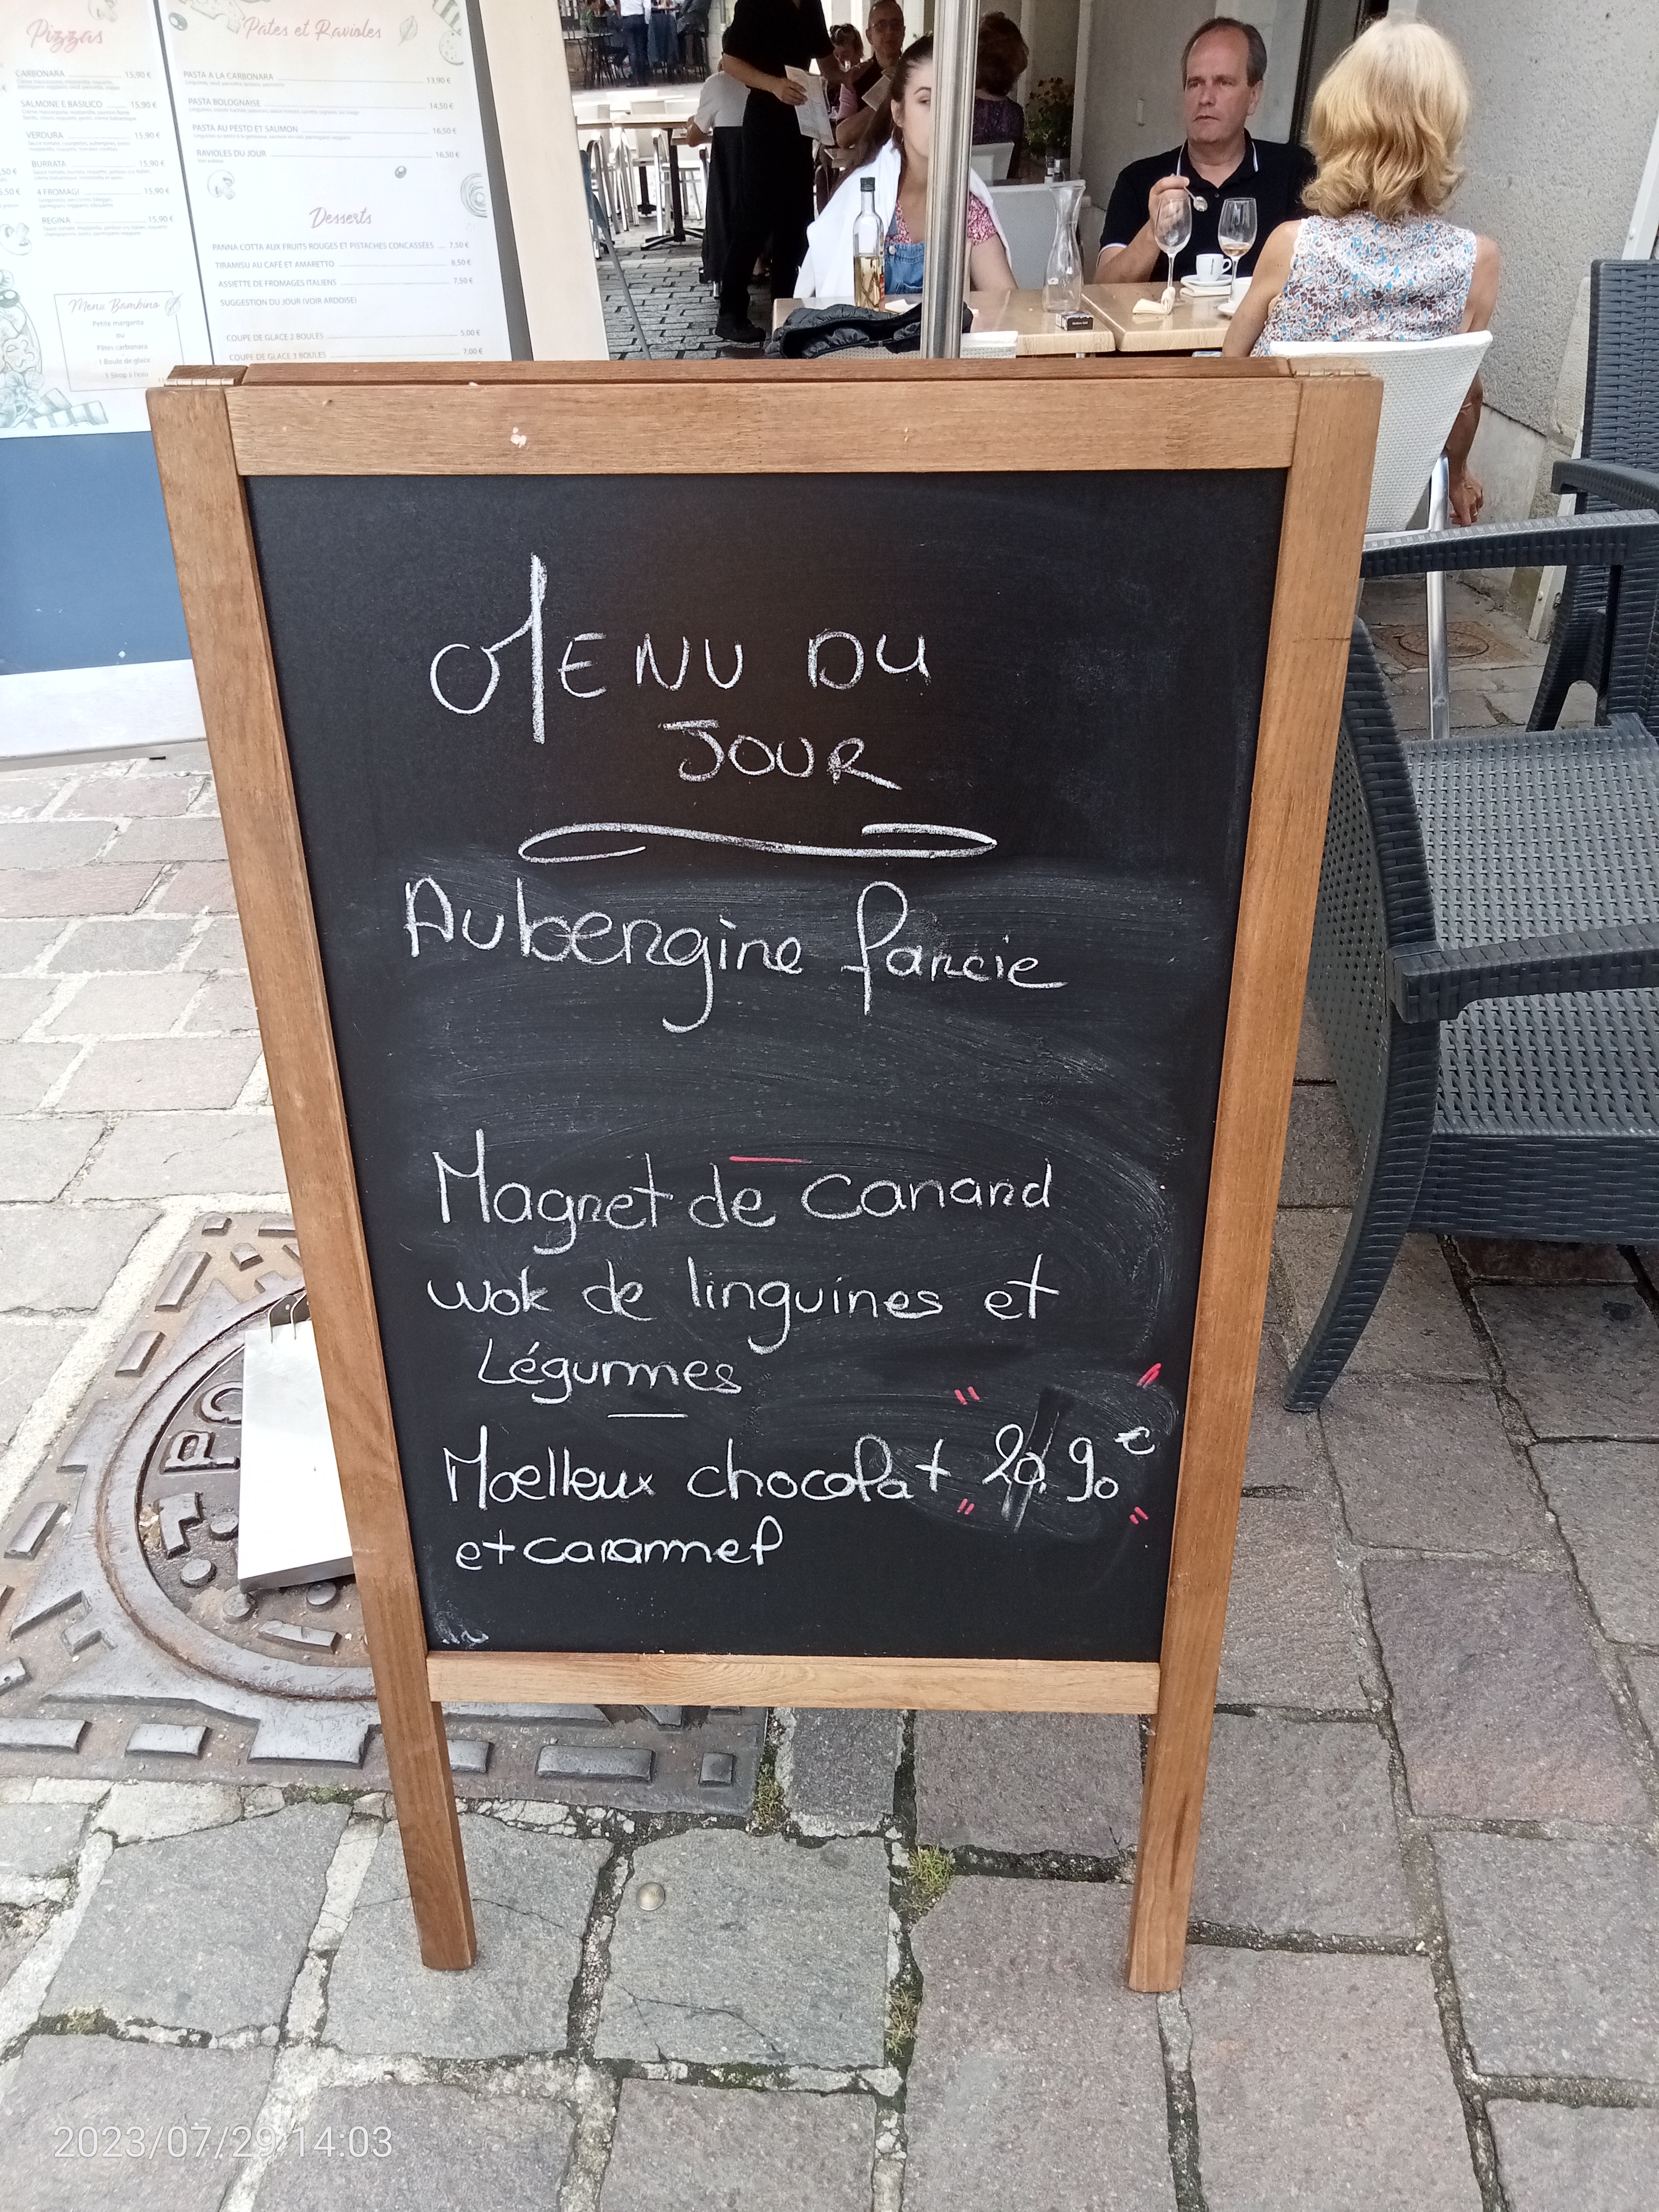 Pizzas
CARBONARA 15,90 €
SALMONE E BASILICO 15,90 €
VERDURA 15,90 €
BURRATA 15,90 €
4 FROMAGI 15,90 €
REGINA 15,90 €
Menu Bambino
Petite margerita
ou
Pâtes carbonara
1 Boule de glace
1 Sirop à l'eau
Pâtes et Ravioles
PASTA A LA CARBONARA 13,90 €
PASTA BOLOGNAISE 14,50 €
PASTA AU PESTO ET SAUMON 16,50 €
RAVIOLES DU JOUR 16,50 €
Desserts
PANNA COTTA AUX FRUITS ROUGES ET PISTACHES CONCASSÉES 7,50 €
TIRAMISU AU CAFÉ ET AMARETTO 8,50 €
ASSIETTE DE FROMAGES ITALIENS 7,50 €
SUGGESTION DU JOUR (VOIR ARDOISE)
COUPE DE GLACE 2 BOULES 5,00 €
COUPE DE GLACE 3 BOULES 7,00 €
MENU DU
JOUR
Aubergine farcie
Magret de canard
wok de linguines et
Légumes
Moelleux chocolat
et caramel
2023/07/29 14:03